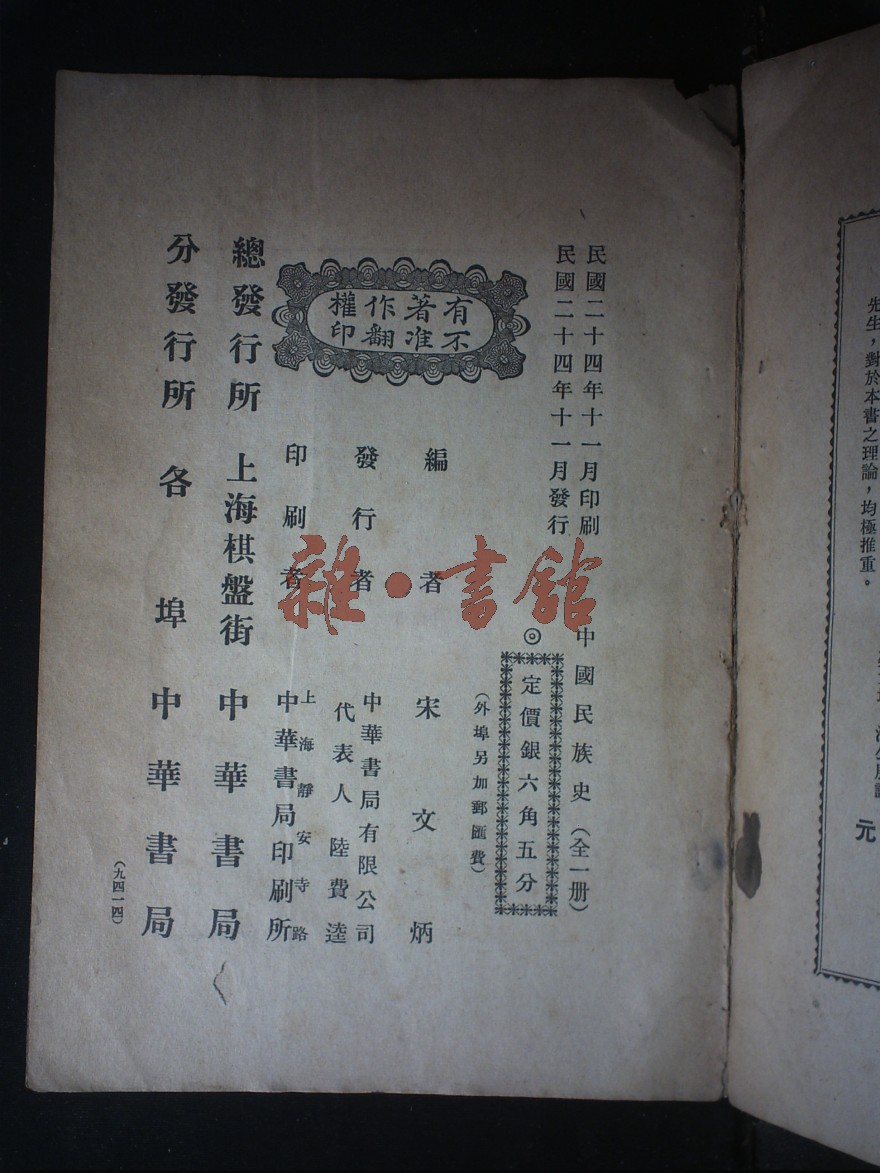 先生，對於本書之理論，均極推重。
元
民國二十四年十一月印刷
民國二十四年十一月發行
中國民族史（全一册）
◎
定價銀六角五分
（外埠另加郵匯費）
有著作權
不准翻印
編者 宋文炳
發行者 中華書局有限公司
代表人 陸費逵
印刷者 上海靜安寺路
中華書局印刷所
總發行所 上海棋盤街 中華書局
分發行所 各埠 中華書局
（九四一四）
雜·書館